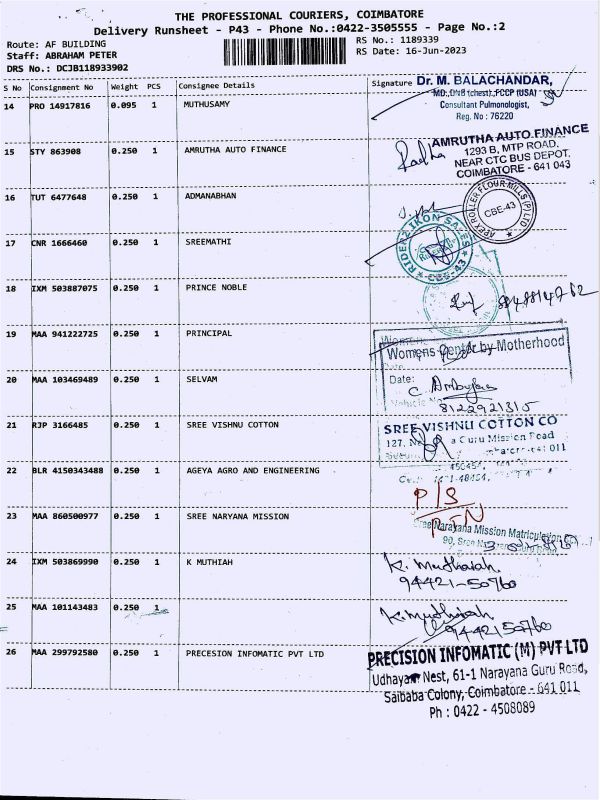 THE PROFESSIONAL COURIERS, COIMBATORE
Delivery Runsheet - P43 - Phone No.:0422-3505555 - Page No.:2
Route: AF BUILDING
RS No.: 1189339
Staff: ABRAHAM PETER
RS Date: 16-Jun-2023
DRS No.: DCJB118933902
S No Consignment No Weight PCS Consignee Details Signature
Dr. M. BALACHANDAR,
MD.,DNB (chest).,FCCP (USA)
Consultant Pulmonologist,
Reg. No : 76220
14 PRO 14917816 0.095 1 MUTHUSAMY
15 STY 863908 0.250 1 AMRUTHA AUTO FINANCE
Radha
AMRUTHA AUTO FINANCE
1293 B, MTP ROAD,
NEAR CTC BUS DEPOT,
COIMBATORE - 641 043
16 TUT 6477648 0.250 1 ADMANABHAN
APEX ROLLER FLOUR MILLS (P) LTD
CBE-43
17 CNR 1666460 0.250 1 SREEMATHI
RIDERZ IKON SALES
CBE-43
18 IXM 503887075 0.250 1 PRINCE NOBLE
19 MAA 941222725 0.250 1 PRINCIPAL
Womens Center by Motherhood
Date:
20 MAA 103469489 0.250 1 SELVAM
Vehicle No
8122921315
21 RJP 3166485 0.250 1 SREE VISHNU COTTON
SREE VISHNU COTTON CO
127, a Guru Mission Road
011
22 BLR 4150343488 0.250 1 AGEYA AGRO AND ENGINEERING
P/S
23 MAA 860500977 0.250 1 SREE NARYANA MISSION
Sree Narayana Mission Matriculation
24 IXM 503869990 0.250 1 K MUTHIAH
K. Muthaiah.
94421-50760
25 MAA 101143483 0.250 1
K. Muthaiah
9442150760
26 MAA 299792580 0.250 1 PRECESION INFOMATIC PVT LTD
PRECISION INFOMATIC (M) PVT LTD
Udhayam Nest, 61-1 Narayana Guru Road,
Saibaba Colony, Coimbatore - 641 011
Ph : 0422 - 4508089